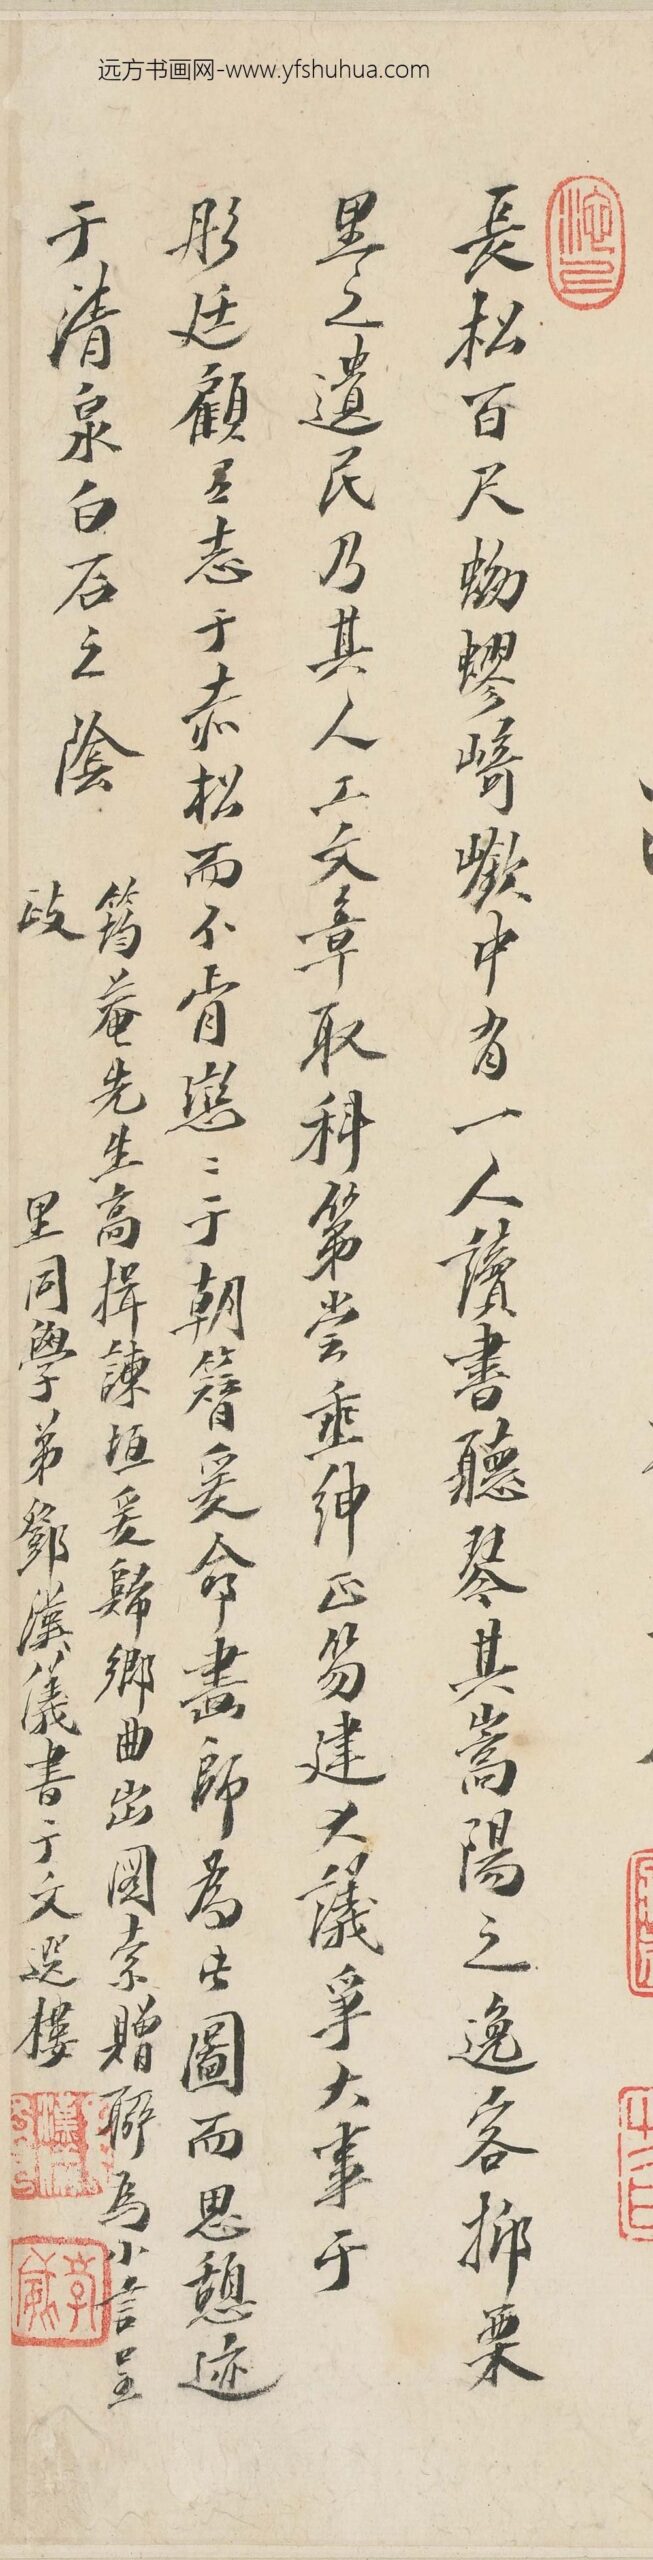 远方书画网-www.yfshuhua.com
長松百尺蚴蟉﨑嶔中有一人讀書聽琴其嵩陽之逸客抑栗
里之遺民乃其人工文章取科第嘗垂紳正笏建大議爭大事于
彤廷顧有志于赤松而不肯戀〻于朝簪爰命畵師為此圖而思憩迹
于清泉白石之陰
筠菴先生高揖諫垣爰歸鄉曲出圖索贈聊為小言呈
政
里同學弟鄧漢儀書于文選樓